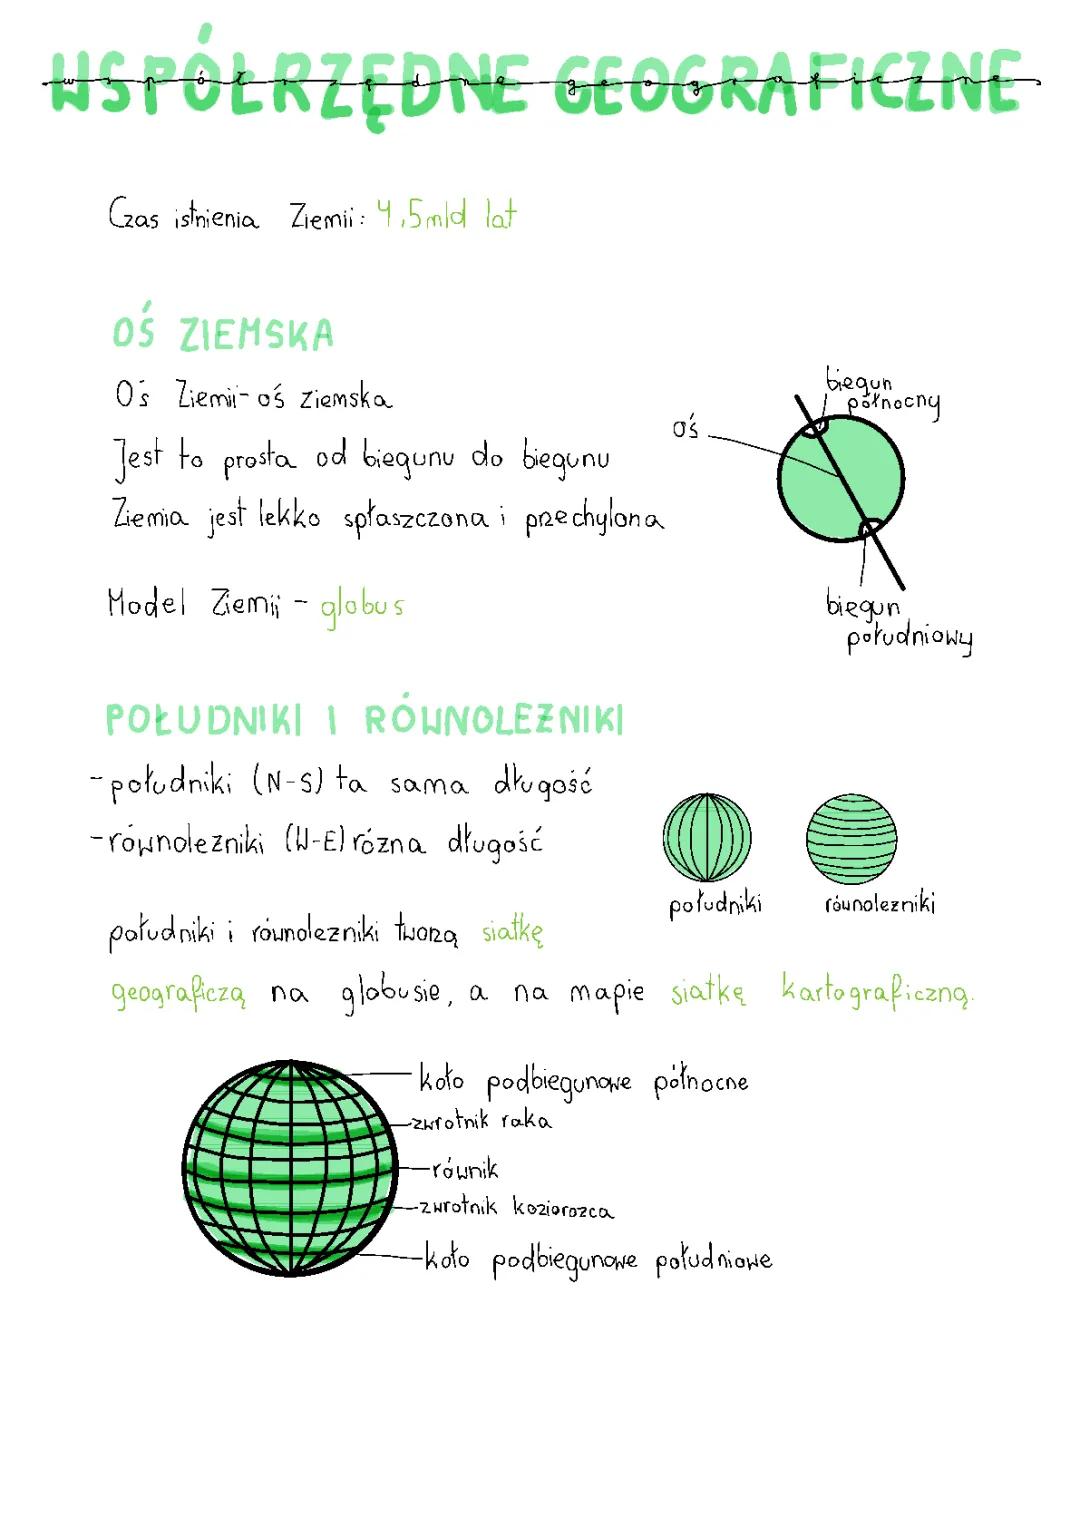 WSPÓŁRZĘDNE GEOGRAFICZNE
współrzędne geograficzne
Czas istnienia Ziemii: 4,5mld lat
OŚ ZIEMSKA
Oś Ziemii-oś ziemska
Jest to prosta od biegunu do biegunu
Ziemia jest lekko spłaszczona i przechylona
biegun
północny
oś
biegun
południowy
Model Ziemii - globus
POŁUDNIKI I RÓWNOLEŻNIKI
-południki (N-S) ta sama długość
-równoleżniki (W-E) rózna długość
południki
równoleżniki
południki i równoleżniki tworzą siatkę
geograficzą na globusie, a na mapie siatkę kartograficzną.
koło podbiegunowe północne
zwrotnik raka
równik
zwrotnik koziorożca
koło podbiegunowe południowe